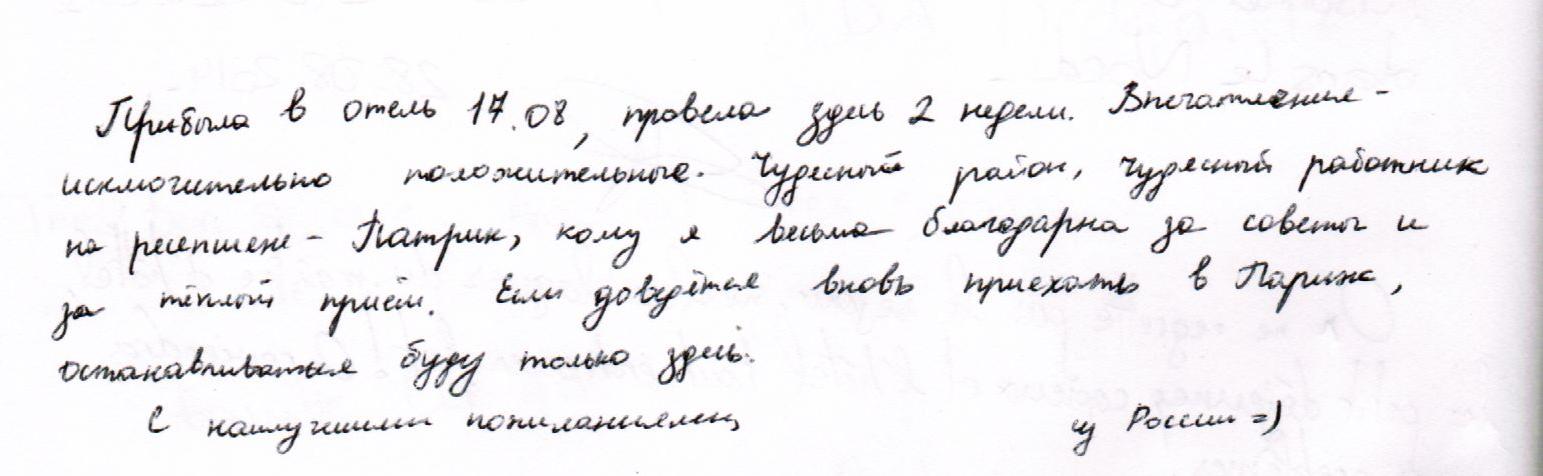 Прибыла в отель 17.08, провела здесь 2 недели. Впечатления -
исключительно положительные. Чудесный район, чудесный работник
на ресепшене - Патрик, кому я весьма благодарна за советы и
за тёплый приём. Если доведётся вновь приехать в Париж,
останавливаться буду только здесь.
С наилучшими пожеланиями, из России =)